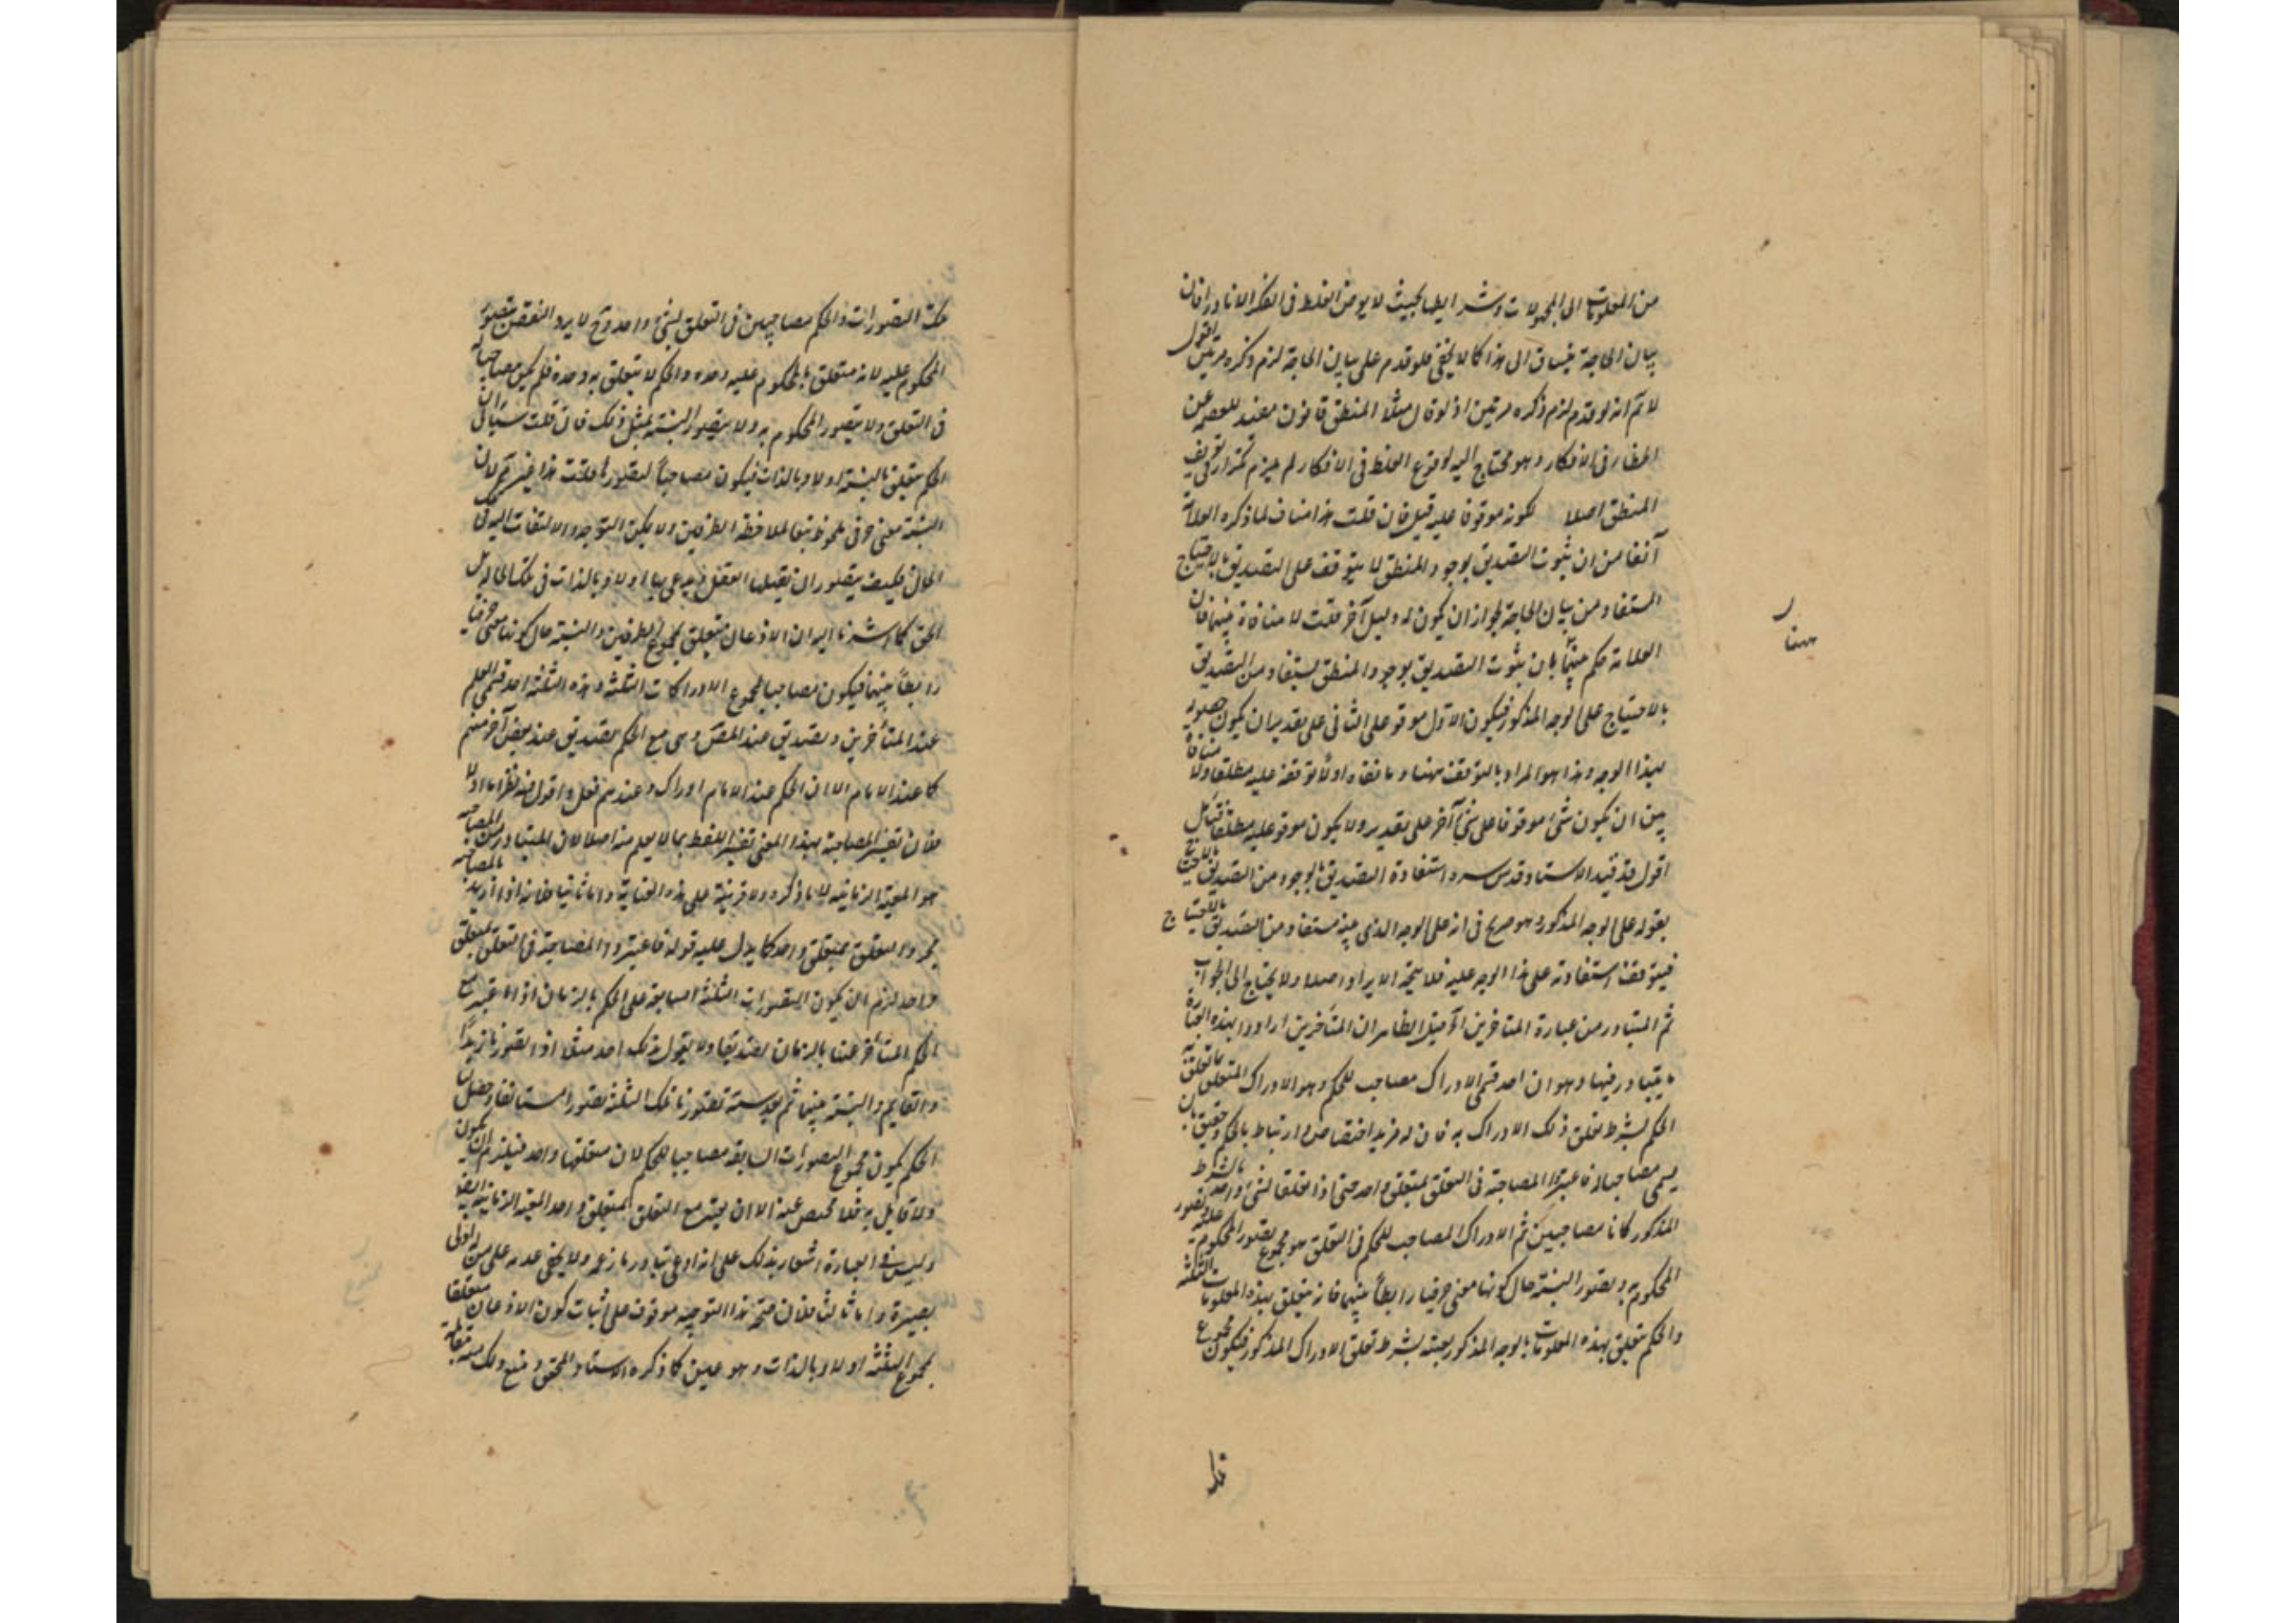 من المعلومات الى المجهولات وشرايطها بحيث لا يعرض الغلط فى الفكر الا نادرا فان
بيان الحاجة ينساق الى هذا كما لا يخفى فلو قدم على بيان الحاجة لزم ذكره مرتين اقول
لا نم انه لو قدم لزم ذكره مرتين اذ لو قال مثلا المنطق قانون مفيد للعصمة عن
الخطاء فى الافكار وهو محتاج اليه لوقوع الغلط فى الافكار لم يلزم تكرار تعريف
المنطق اصلا لكونه موقوفا عليه قيل فان قلت هذا مناف لما ذكره العلامة
آنفا من ان ثبوت التصديق بوجود المنطق لا يتوقف على التصديق بالاحتياج
المستفاد من بيان الحاجة لجواز ان يكون له دليل آخر قلت لا منافاة بينهما فان
العلامة حكم بان ثبوت التصديق بوجود المنطق يستفاد من التصديق
بالاحتياج على الوجه المذكور فيكون الاول موقوفا على الثانى على تقدير ان يكون حصوله
بهذا الوجه وهذا هو المراد بالتوقف ههنا وما نفاه اولا توقفه عليه مطلقا ولا منافاة
بين ان يكون شئ موقوفا على شئ آخر على تقدير ولا يكون موقوفا عليه مطلقا فتأمل
اقول قد قيد الاستاد قدس سره استفادة التصديق بالوجود من التصديق بالاحتياج
بقوله على الوجه المذكور وهو صريح فى انه على الوجه الذى بينه مستفاد من التصديق بالاحتياج
فيتوقف استفادته على هذا الوجه عليه فلا يتجه الايراد اصلا ولا يحتاج الى الجواب
ثم المتبادر من عبارة المتأخرين آه قيل الظاهر ان المتأخرين ارادوا بهذه العبارة
ما يتبادر منها وهو ان احد قسمى الادراك مصاحب للحكم وهو الادراك المتعلق بما تعلق به
الحكم بشرط تعلق ذلك الادراك به فان له مزيد اختصاص وارتباط بالحكم وحقيق بان
يسمى مصاحبا له فاعتبروا المصاحبة فى التعلق بمتعلق واحد حتى اذا تعلقا بشئ واحد بالشرط
المذكور كانا مصاحبين ثم الادراك المصاحب للحكم فى التعلق هو مجموع تصور المحكوم عليه وتصور
المحكوم به وتصور النسبة حال كونها معنى حرفيا رابطا بينهما فانه متعلق بهذه المعلومات الثلثة
والحكم يتعلق بهذه المعلومات بالوجه المذكور بعينه بشرط تعلق الادراك المذكور فيكون مجموع
تلك التصورات والحكم مصاحبين فى التعلق بشئ واحد وح لا يرد النقض بتصور
المحكوم عليه لانه متعلق بالمحكوم عليه وحده والحكم لا يتعلق به وحده فلم يكن مصاحبا له
فى التعلق ولا بتصور المحكوم به ولا بتصور النسبة بمثل ذلك فان قلت سيأتى ان
الحكم يتعلق بالنسبة اولا وبالذات فيكون مصاحبا لتصورها قلت هذا غير تم لان
النسبة معنى حرفى ملحوظ تبعا لملاحظة الطرفين ولا يمكن التوجه والالتفات اليه فى تلك
الحال فكيف يتصور ان يقبلها العقل ويدعى بها اولا وبالذات فى تلك الحالة بل
الحق كما اشرنا اليه ان الاذعان متعلق بمجموع الطرفين والنسبة حال كونها معنى حرفيا
رابطا بينهما فيكون مصاحبا لمجموع الادراكات الثلثة وهذه الثلثة احد قسمى العلم
عند المتأخرين وتصديق عند المص وهى مع الحكم تصديق عند بعض آخر منهم
كما عند الامام الا ان الحكم عند الامام ادراك وعندهم فعل واقول فيه نظر اما اولا
فلان تفسير المصاحبة بهذا المعنى تفسير اللفظ بما لا يعلم منه اصلا لان المتبادر من المصاحبة
هو المعية الزمانية لا ما ذكره ولا قرينة على هذه العناية واما ثانيا فانه اذا اريد بالمصاحبة
مجرد التعلق بمتعلق واحد كما يدل عليه قوله فاعتبروا المصاحبة فى التعلق بمتعلق
واحد لزم ان يكون التصورات الثلثة السابقة على الحكم بالزمان اذا اعتبر مع
الحكم المتأخر عنها بالزمان تصديقا ولا يقول بذلك احد مثلا اذا تصورنا زيدا
والقايم والنسبة بينهما ثم بعد سنة تصورنا تلك الثلثة تصورا مستأنفا وحصل لنا
الحكم يكون مجموع التصورات السابقة مصاحبا للحكم لان متعلقها واحد فيلزم ان يكون
ولا قايل به فلا محيص عنه الا ان يعتبر مع التعلق بمتعلق واحد المعية الزمانية ايضا
وليس فى العبارة اشعار بذلك على انه ادعى تبادر ما زعمه ولا يخفى عدمه على من له ادنى
بصيرة واما ثالثا فلان صحة هذا التوجيه موقوف على اثبات كون الاذعان متعلقا
بمجموع الثلثة اولا وبالذات وهو عين كما ذكره الاستاد المحقق ومنع ذلك